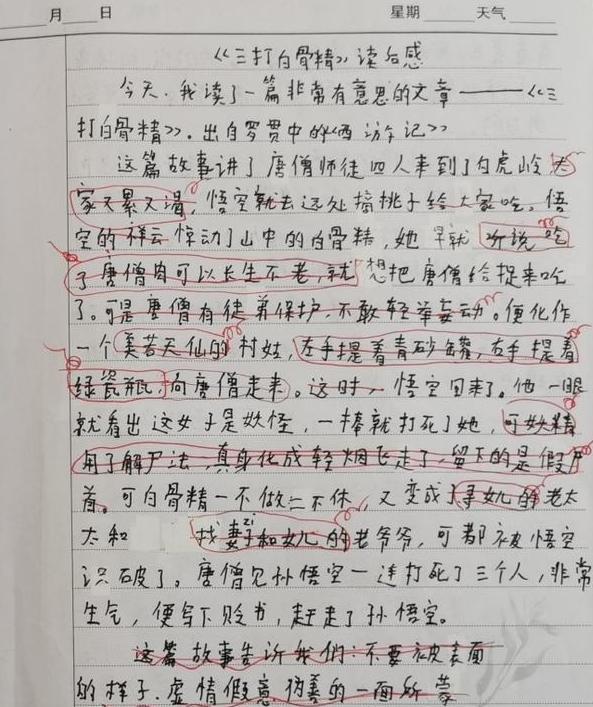 月 日 星期 天气
《三打白骨精》读后感
今天,我读了一篇非常有意思的文章——《三
打白骨精》。出自罗贯中的《西游记》
这篇故事讲了唐僧师徒四人来到了白虎岭大
家又累又渴,悟空就去远处摘桃子给大家吃。悟
空的祥云惊动了山中的白骨精,她早就听说吃
了唐僧肉可以长生不老,就想把唐僧给捉来吃
了。可是唐僧有徒弟保护,不敢轻举妄动。便化作
一个美若天仙的村姑,左手提着青砂罐,右手提着
绿瓷瓶,向唐僧走来。这时,悟空回来了。他一眼
就看出这女子是妖怪,一棒就打死了她,可妖精
用了解尸法,真身化成轻烟飞走了,留下的是假尸
首。可白骨精一不做二不休,又变成了寻女儿的老太
太和 找妻zi和女儿的老爷爷,可都被悟空
识破了。唐僧见孙悟空一连打死了三个人,非常
生气,便写下贬书,赶走了孙悟空。
这篇故事告诉我们:不要被表面
的样子.虚情假意伪善的一面所蒙